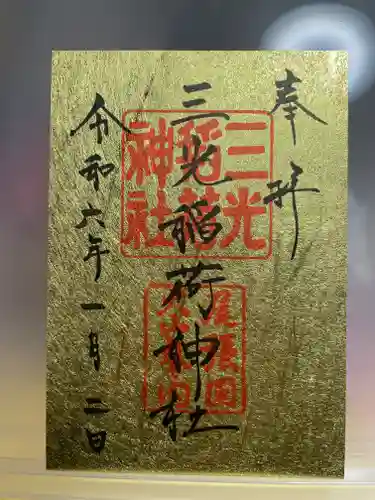 奉拝
三光稲荷神社
令和六年一月二日
三光稲荷神社
尾張国